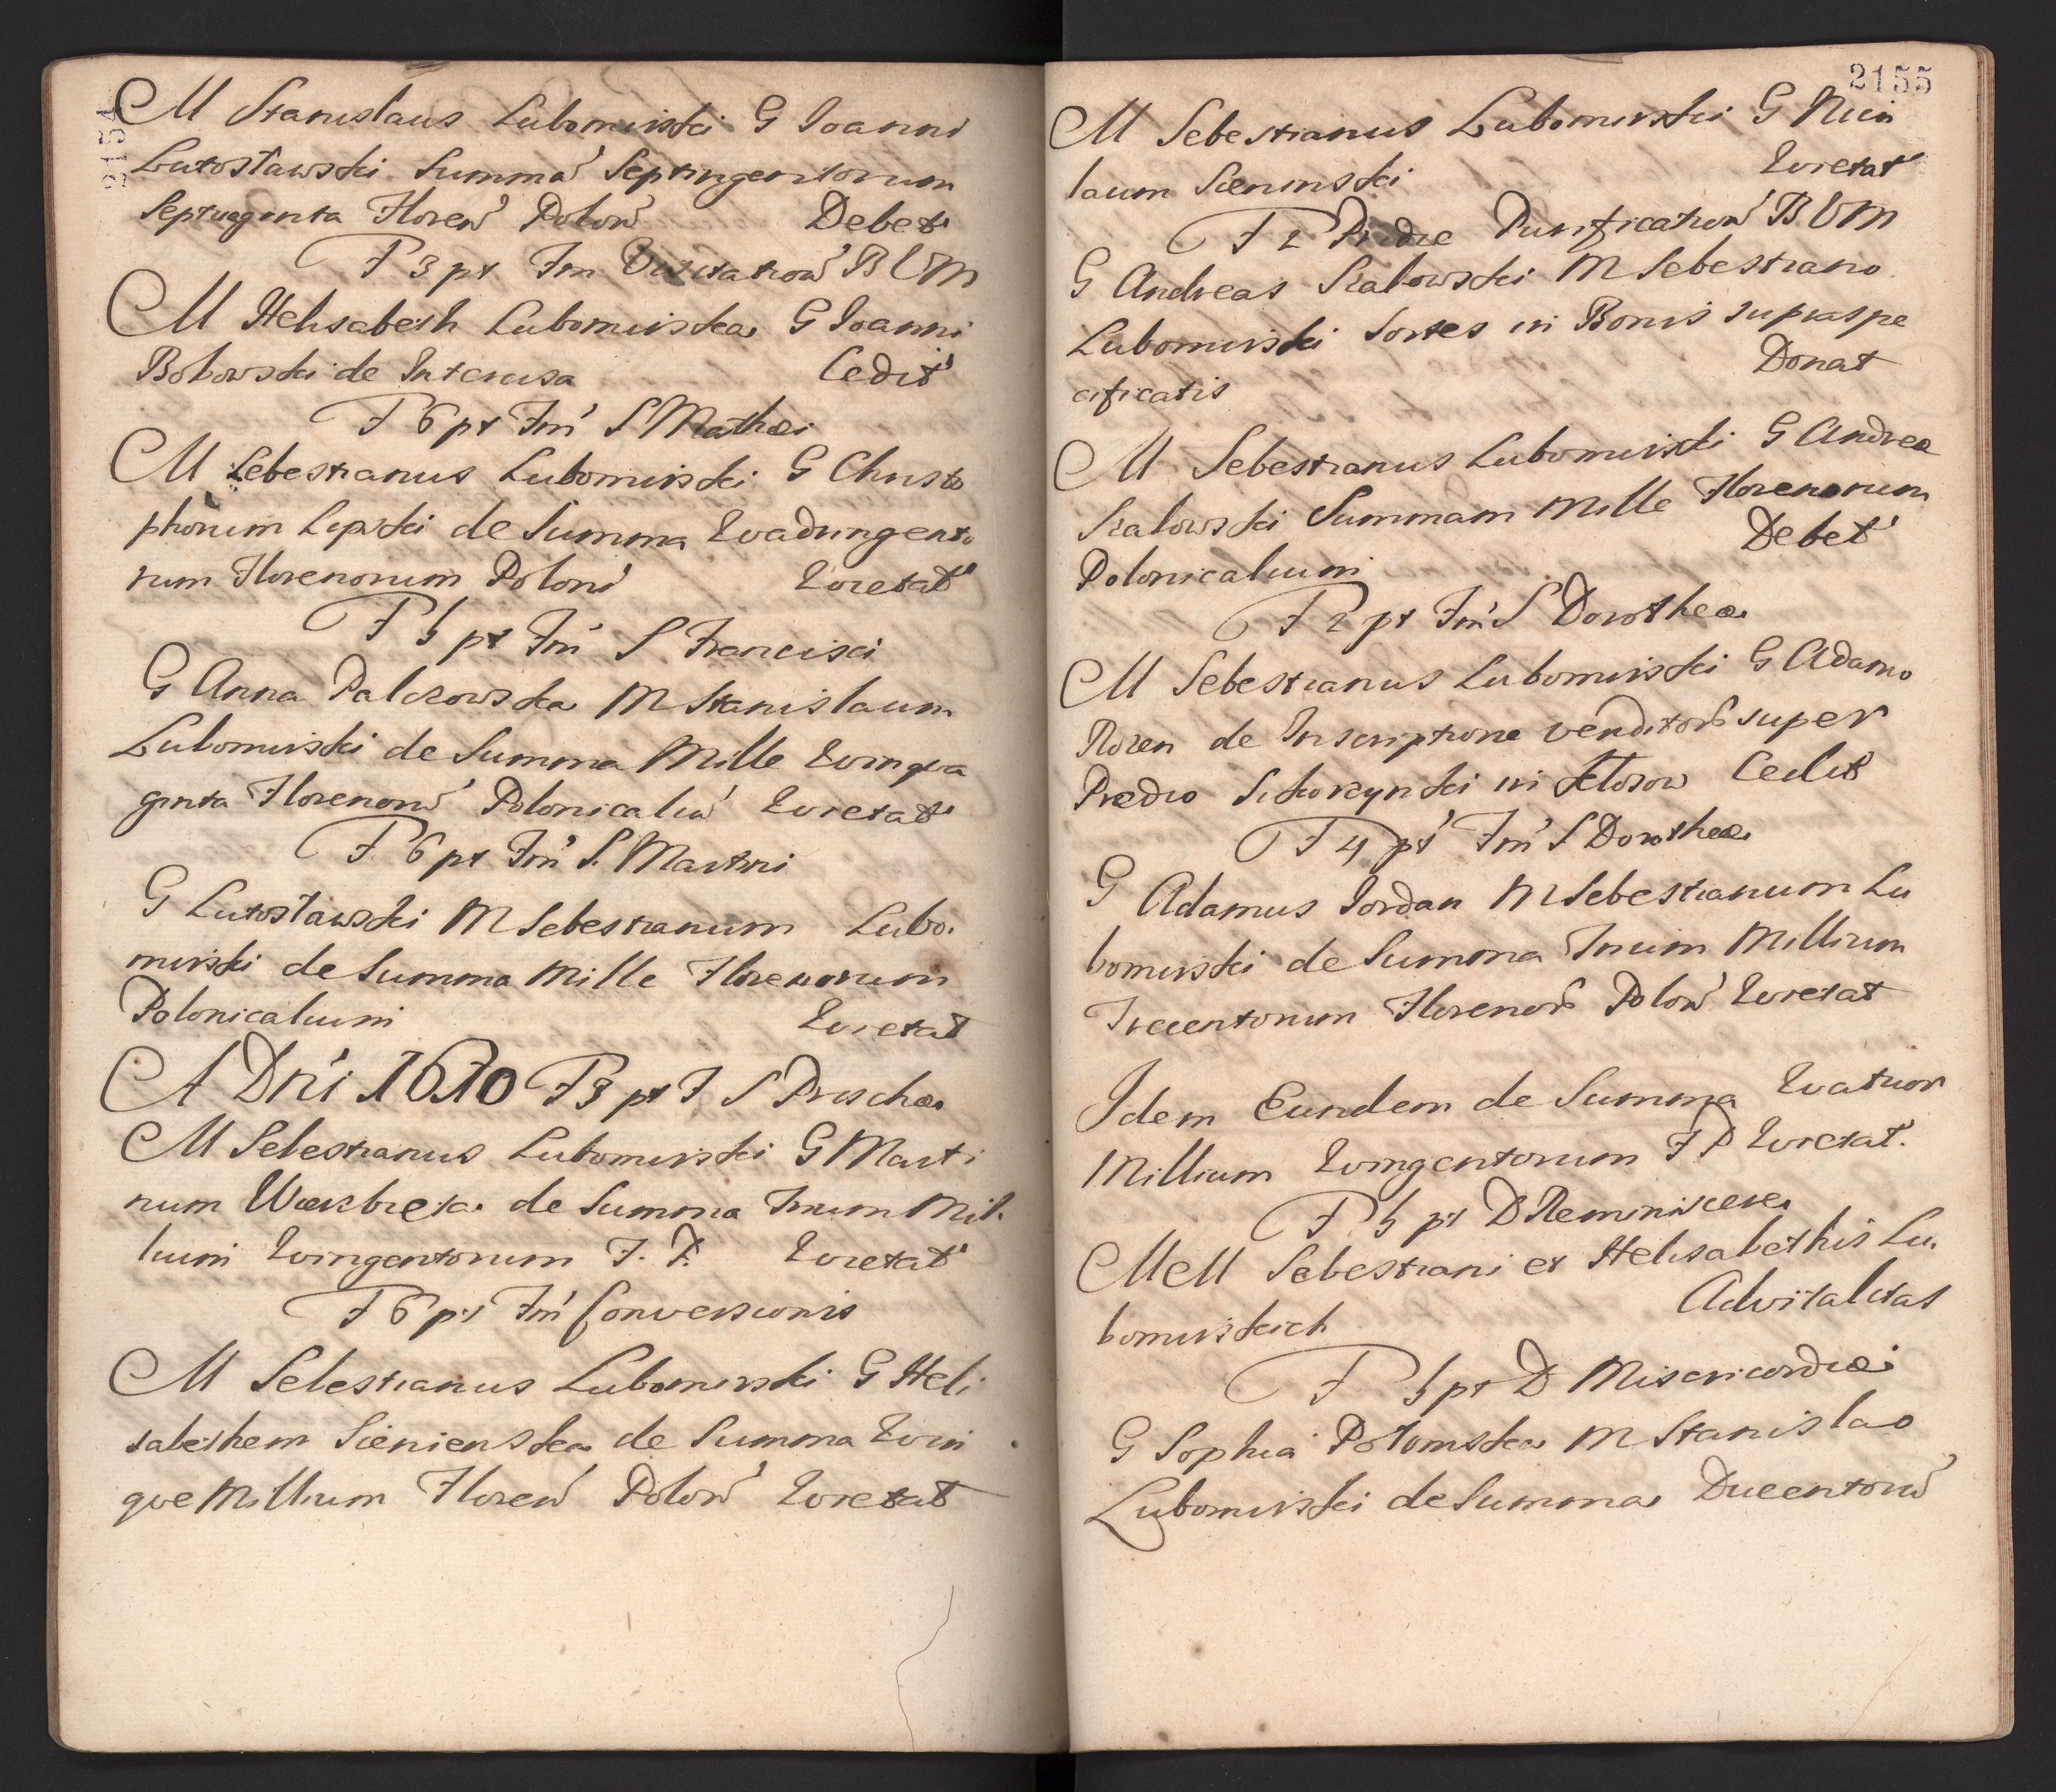 2154
M Stanislaus Lubomirski G Joanni
Lutosławski Summa Septingentorum
Septuaginta Floren Polon Debet
F 3 pt Fm Visitation B V M
M Helisabeth Lubomirska G Joanni
Bobowski de Intercisa Cedit
F 6 pt Fm S Mathæi
M Sebestianus Lubomirski G Christo
phorum Lipski de Summa Quadringento
rum Florenorum Poloni Quietat
F 5 pt Fm S Francisci
G Anna Palczowska M Stanislaum
Lubomirski de Summa Mille Quinqua
ginta Florenor Polonicaliu Quietat
F 6 pt Fm S. Martini
G Lutosławski M Sebestianum Lubo.
mirski de Summa Mille Florenorum
Polonicalium Quietat
A Dni 1610 F 3 pt F. S Priscæ
M Sebestianus Lubomirski G Marti
num Wierzbieta de Summa Trium Mil.
lium Quingentorum F. P. Quietat
F 6 pt Fm Conversionis
M Sebestianus Lubomirski G Heli
sabethem Sienienska de Summa Quin
que Millium Floren Polon Quietat
2155
M Sebestianus Lubomirski G Nico
laum Sieninski Quietat
F 2 Pridie Purification B V M
G Andreas Skalowski M Sebestiano
Lubomirski Sortes in Bonis supraspe
cificatis Donat
M Sebestianus Lubomirski G Andreæ
Skalowski Summam Mille Florenorum
Polonicalium Debet
F 2 pt Fm S Dorotheæ
M Sebestianus Lubomirski G Adamo
Rozen de Inscriptione venditor super
Prædio Sikorzynski in Cedit
F 4 pt Fm S Dorotheæ
G Adamus Jordan M Sebestianum Lu
bomirski de Summa Trium Millium
Trecentorum Florenor Polon Quietat
Idem Eundem de Summa Quatuor
Millium Quingentorum F P Quietat.
F 5 pt D Reminiscere
M et M Sebestiani et Helisabethis Lu.
bomirskich Advitalitas
F 5 pt D Misericordiæ
G Sophia Potomska M Stanislao
Lubomirski de Summa Ducentoru